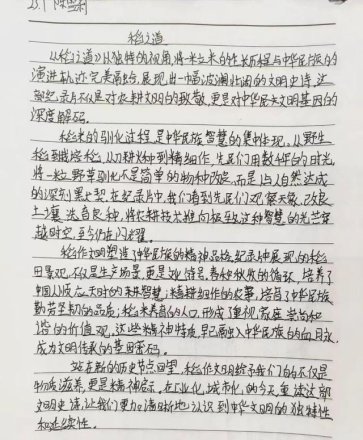 稻之道
《稻之道》以独特的视角,将一粒米的生长历程与中华民族的
演进轨迹完美融合,展现出一幅波澜壮阔的文明史诗,这
部纪录片不仅是对农耕文明的致敬,更是对中华民族文明基因的
深度解码。
稻米的驯化过程,是中华民族智慧的集中体现,从野生
稻到栽培稻,从刀耕火种到精细作,先民们用数千年的时光,
将一粒野草驯化,不是简单的物种改良,而是人与自然达成
的深刻默契,在纪录片中,我们看到先民们观察天象,改良
土壤,选育良种,将农耕技术推向极致这种智慧的光芒穿
越时空,至今仍在闪耀。
稻作文明塑造了中华民族的精神品格,纪录片展现的稻
田景观,不仅是生产场景,更是文化符号,春种秋收的循环,培养了
中国人顺应天时的农耕智慧;精耕细作的农事,培育了中华民族
勤劳坚韧的品质;稻米养育的人口,形成了重视家庭、崇尚和
谐的价值观,这些精神特质,早已融入中华民族的血脉,
成为文明传承的基因密码。
站在新的历史节点回望,稻作文明给予我们的不仅是
物质滋养,更是精神启示。在工业化,城市化的今天,重读这部
文明史诗,让我们更加清晰地认识到中华文明的独特性
和连续性。